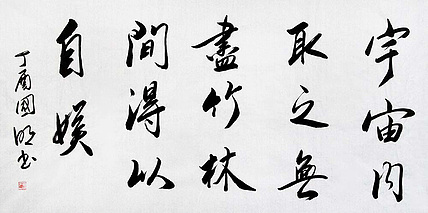 宇宙内
取之無
盡竹林
間得以
自娱
丁酉國明书